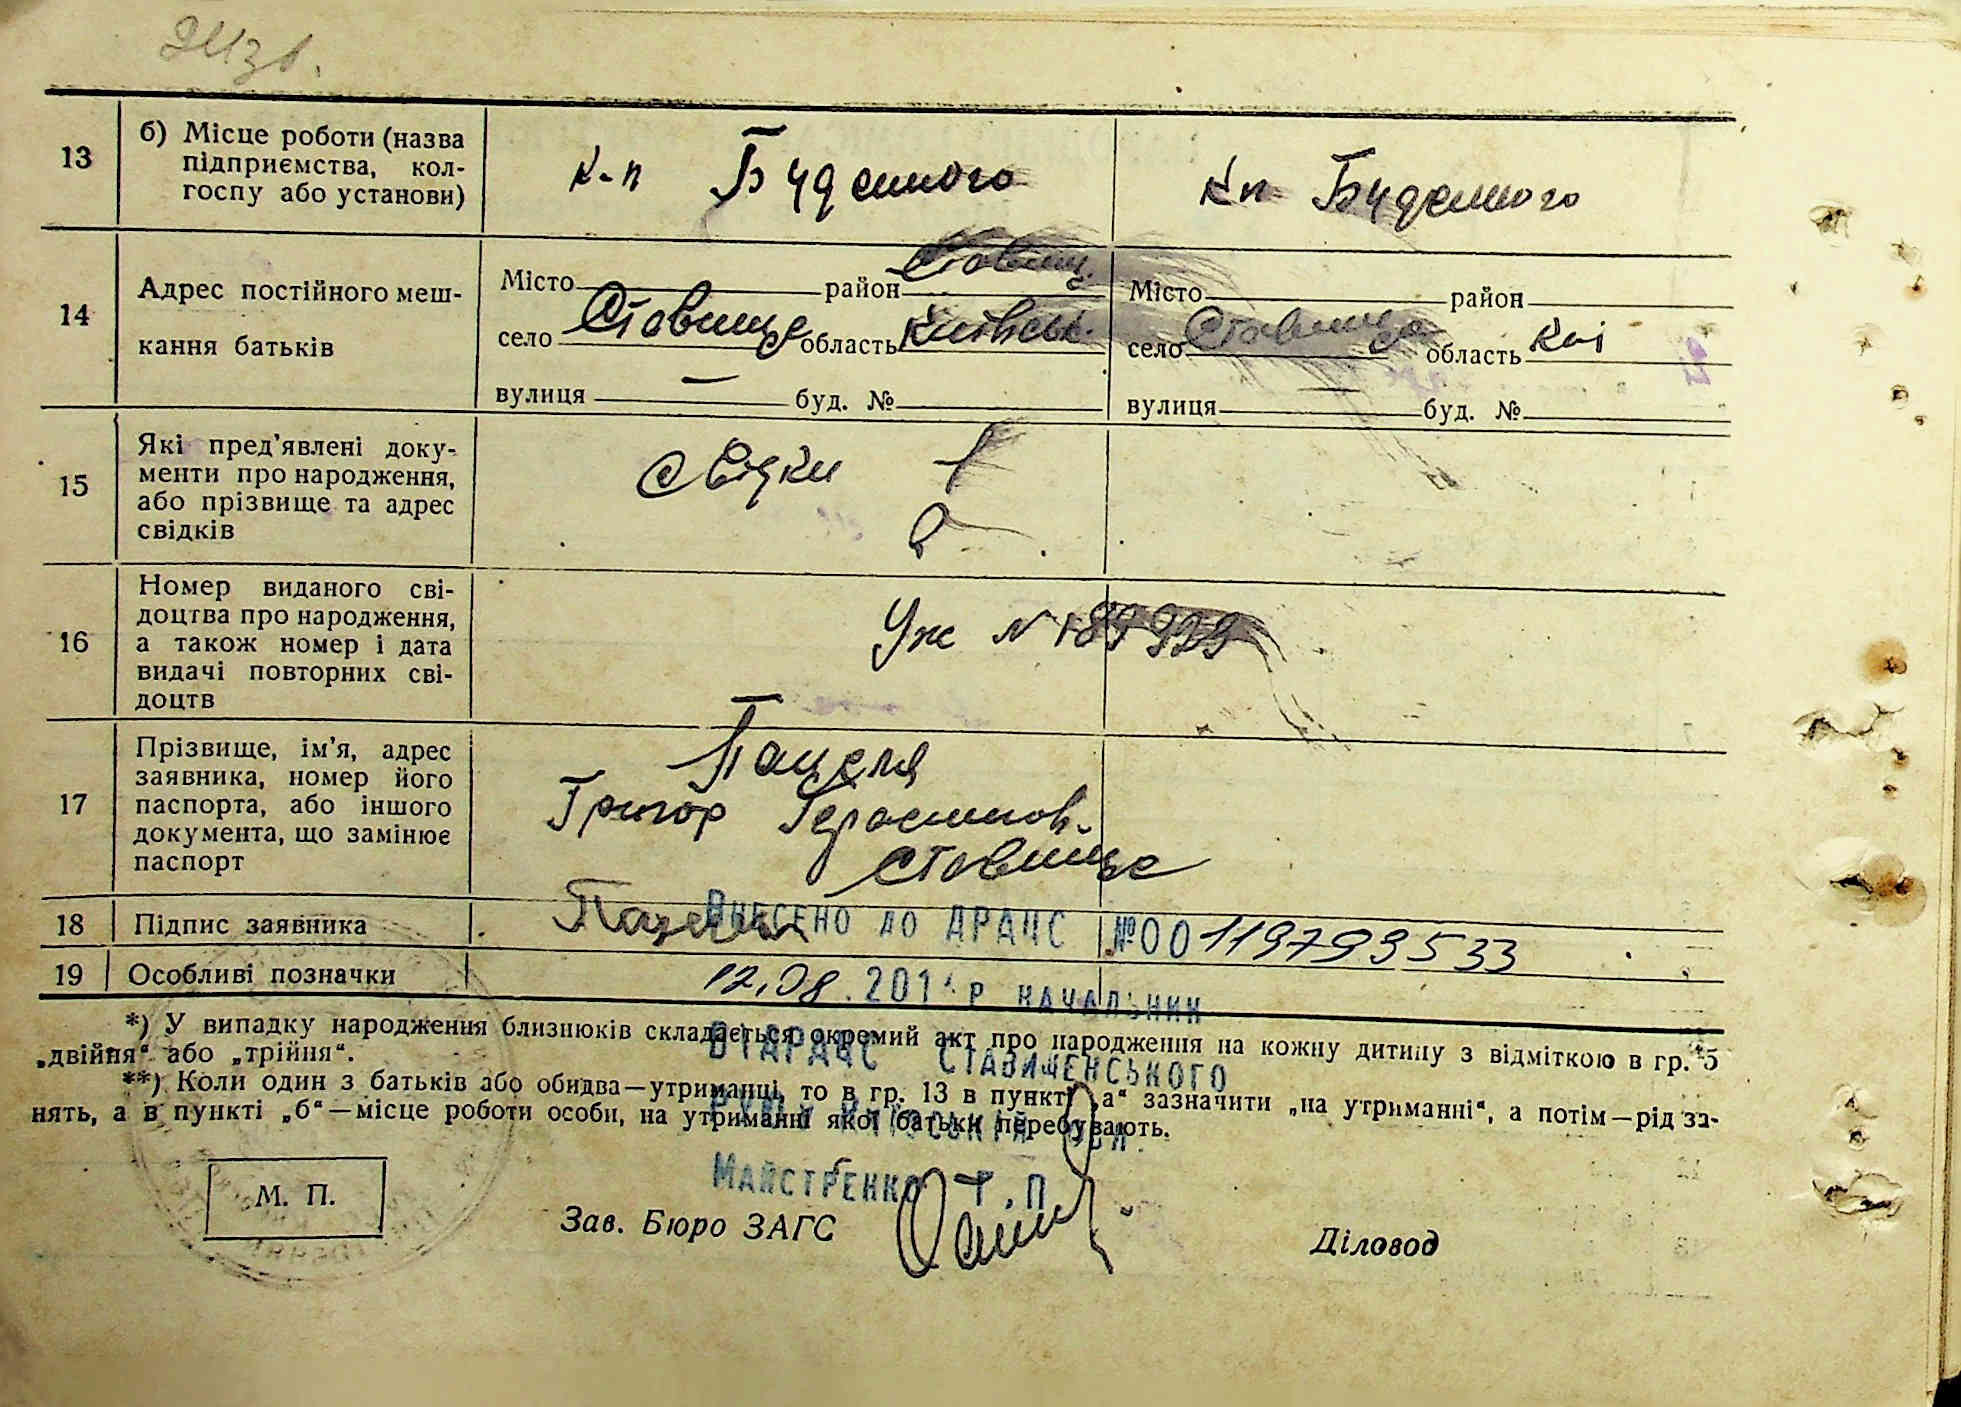 13 б) Місце роботи (назва
підприємства, кол-
госпу або установи)
к-п Буденного
кп Буденного
14 Адрес постійного меш-
кання батьків
Місто район Ставищ.
село Ставище область Київськ.
вулиця — буд. №
Місто район
село Ставище область Киї
вулиця — буд. №
15 Які пред’явлені доку-
менти про народження,
або прізвище та адрес
свідків
свідки 1
2
16 Номер виданого сві-
доцтва про народження,
а також номер і дата
видачі повторних сві-
доцтв
Уж N 189939
17 Прізвище, ім’я, адрес
заявника, номер його
паспорта, або іншого
документа, що замінює
паспорт
Пацеля
Григор Герасимов.
Ставище
18 Підпис заявника
Внесено до ДРАЦС №00 1197993533
19 Особливі позначки
12.08.201 р начальник
ВДРАЦС Ставищенського
*) У випадку народження близнюків складається окремий акт про народження на кожну дитину з відміткою в гр. 5
„двійня“ або „трійня“.
**) Коли один з батьків або обидва—утриманці, то в гр. 13 в пункті „а“ зазначити „на утриманні“, а потім—рід за-
нять, а в пункті „б“—місце роботи особи, на утриманні якої батьки перебувають.
Майстренко Т.П.
М. П.
Зав. Бюро ЗАГС
Діловод